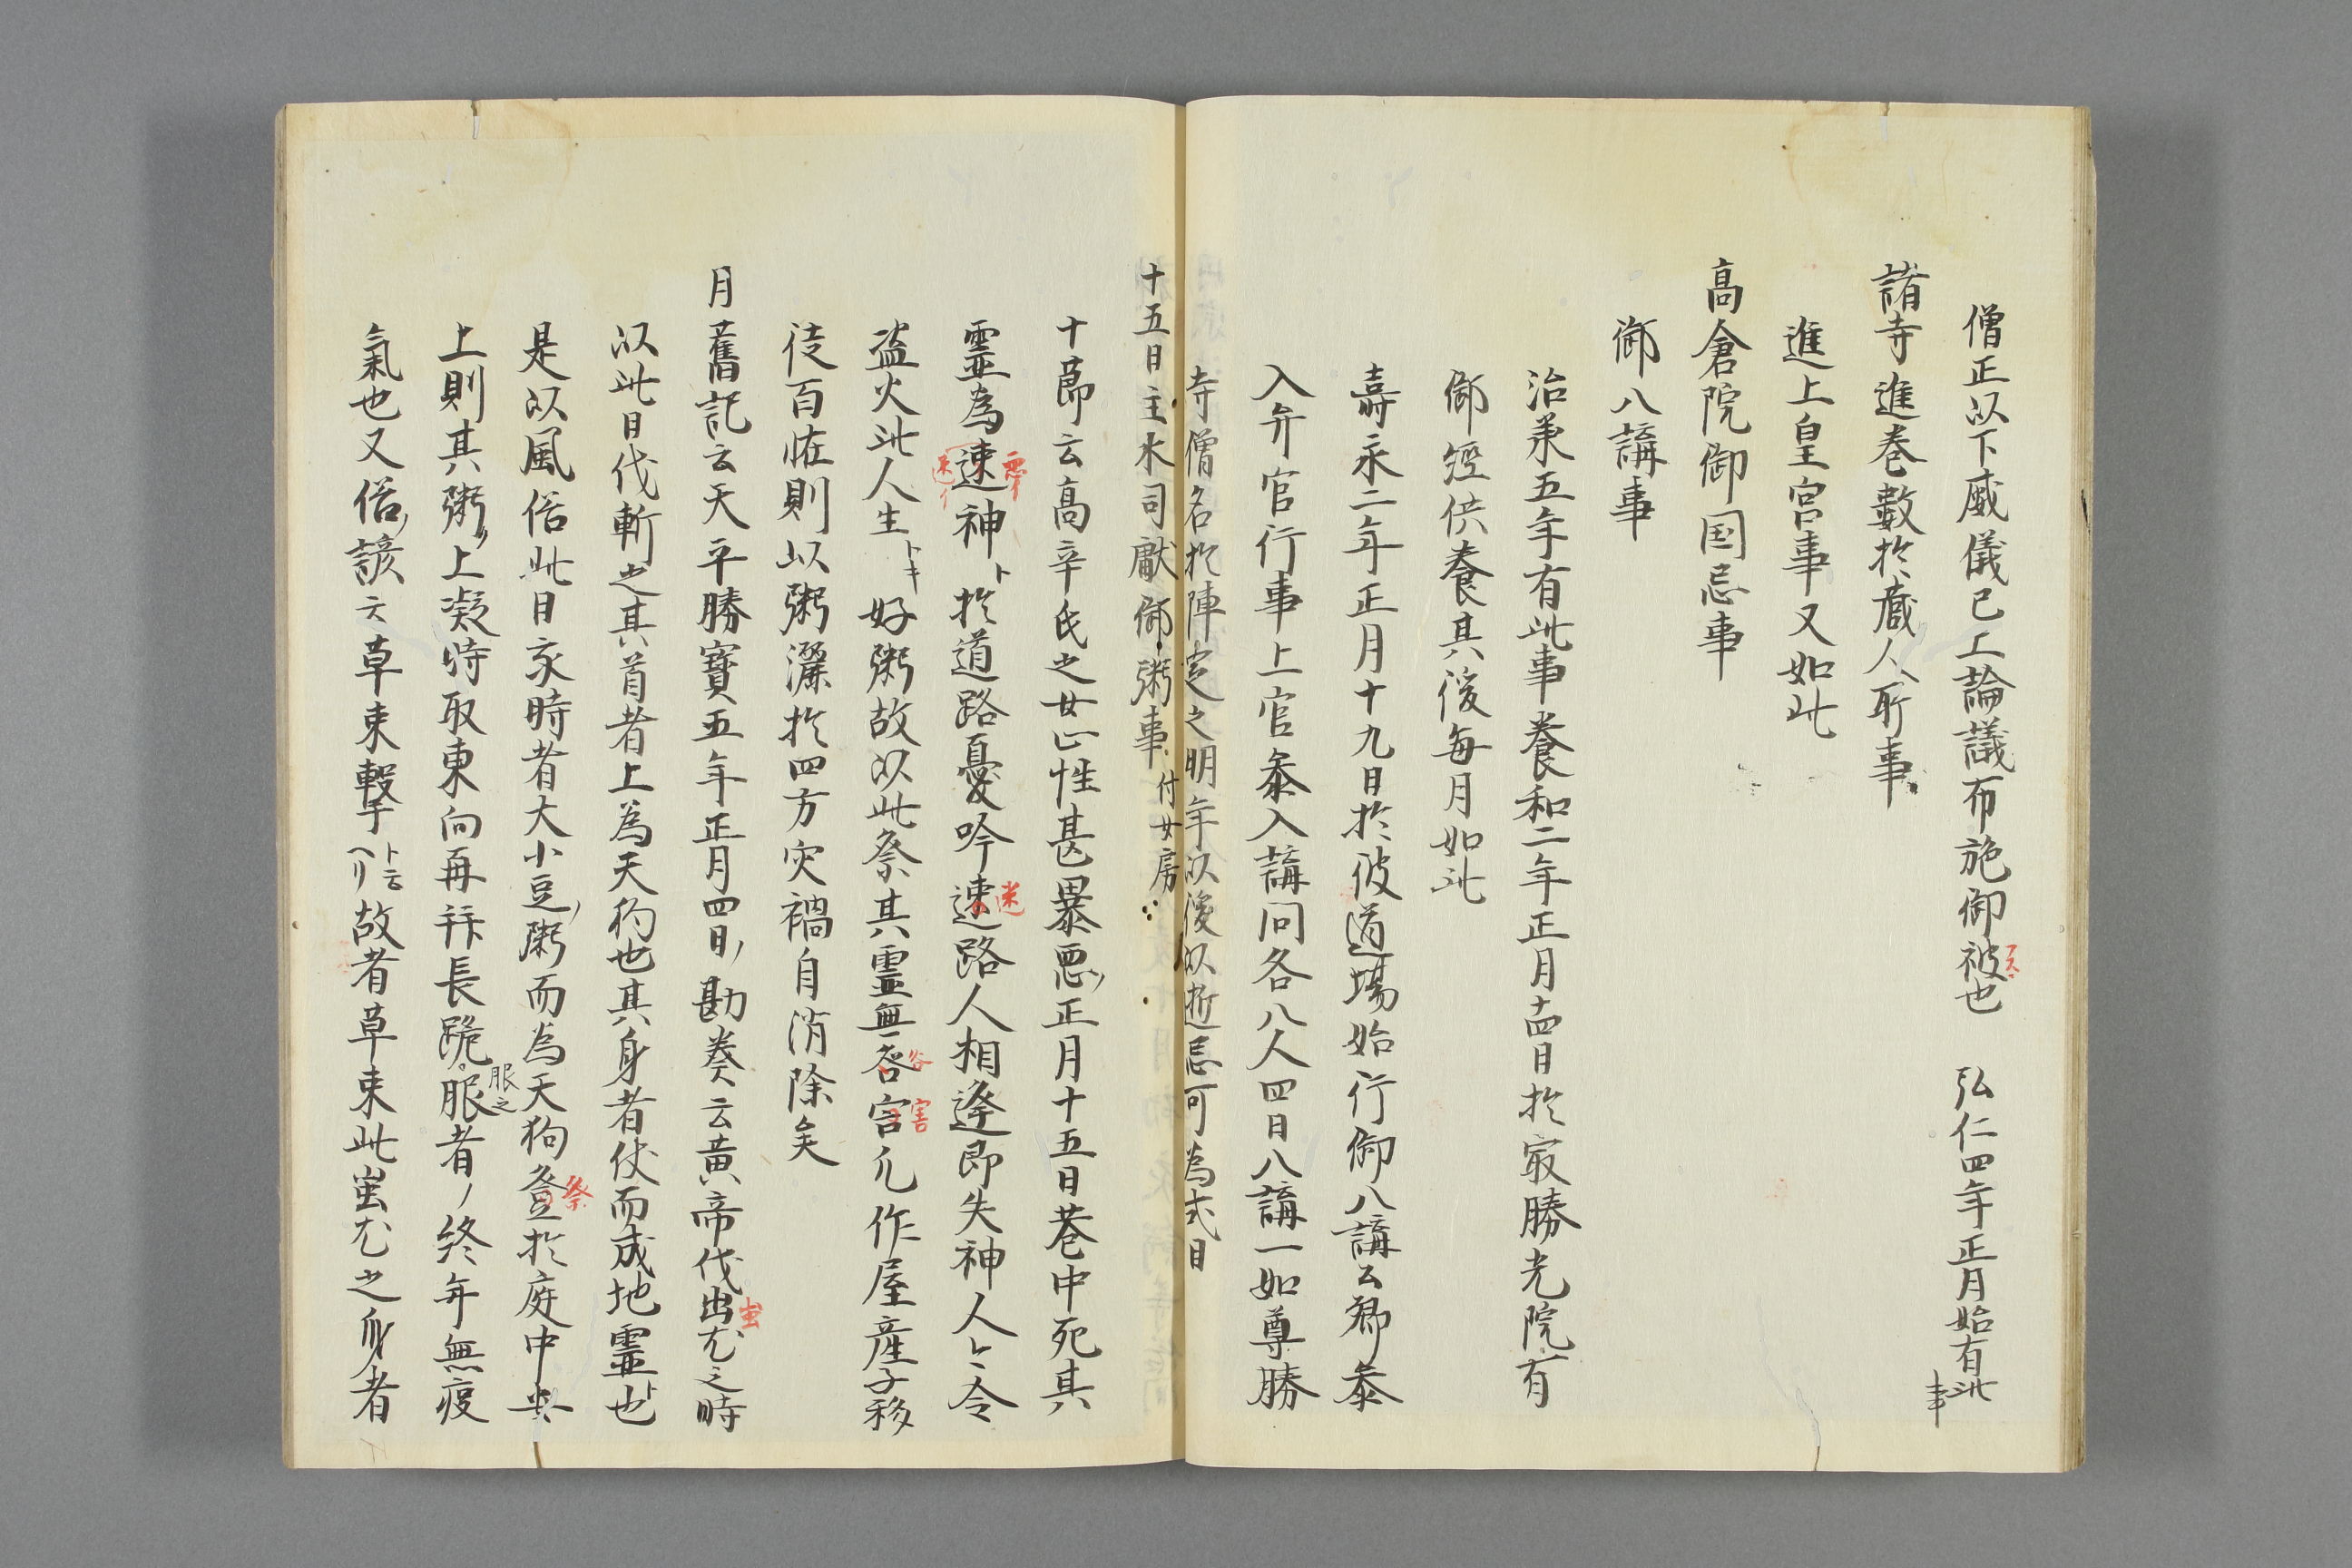 僧正以下威儀已上論議布施御被也　弘仁四年正月始有此事
諸寺進巻數於蔵人所事
進上皇宮事又如此
高倉院御国忌事
御八講事
治承五年有此事養和二年正月十四日於㝡勝光院有
御經供養其後每月如此
壽永二年正月十九日於彼道場始行御八講公卿叅
入弁官行事上官叅入講問各八人四日八講一如尊勝
寺僧名於陣定之明年以後以逝忌可為式日
十五日主水司獻御粥事付女房
十節云高辛氏之女心性甚暴惡正月十五日巷中死其
靈為速神於道路憂吟速路人相逢即失神人々令
盗火此人生好粥故以此祭其靈無咎害凡作屋産子移
徒百恠則以粥灑於四方灾禍自消除矣
月舊記云天平勝寳五年正月四日勘奏云黄帝代蚩尤之時
以此日伐斬之其首者上為天狗也其身者伏而成地靈也
是以風俗此日亥時者大小豆粥而為天狗祭於庭中央
上則其粥上凝時取東向再拜長跪服者終年無疫
氣也又俗諺云草束撃故者草束此蚩尤之身者